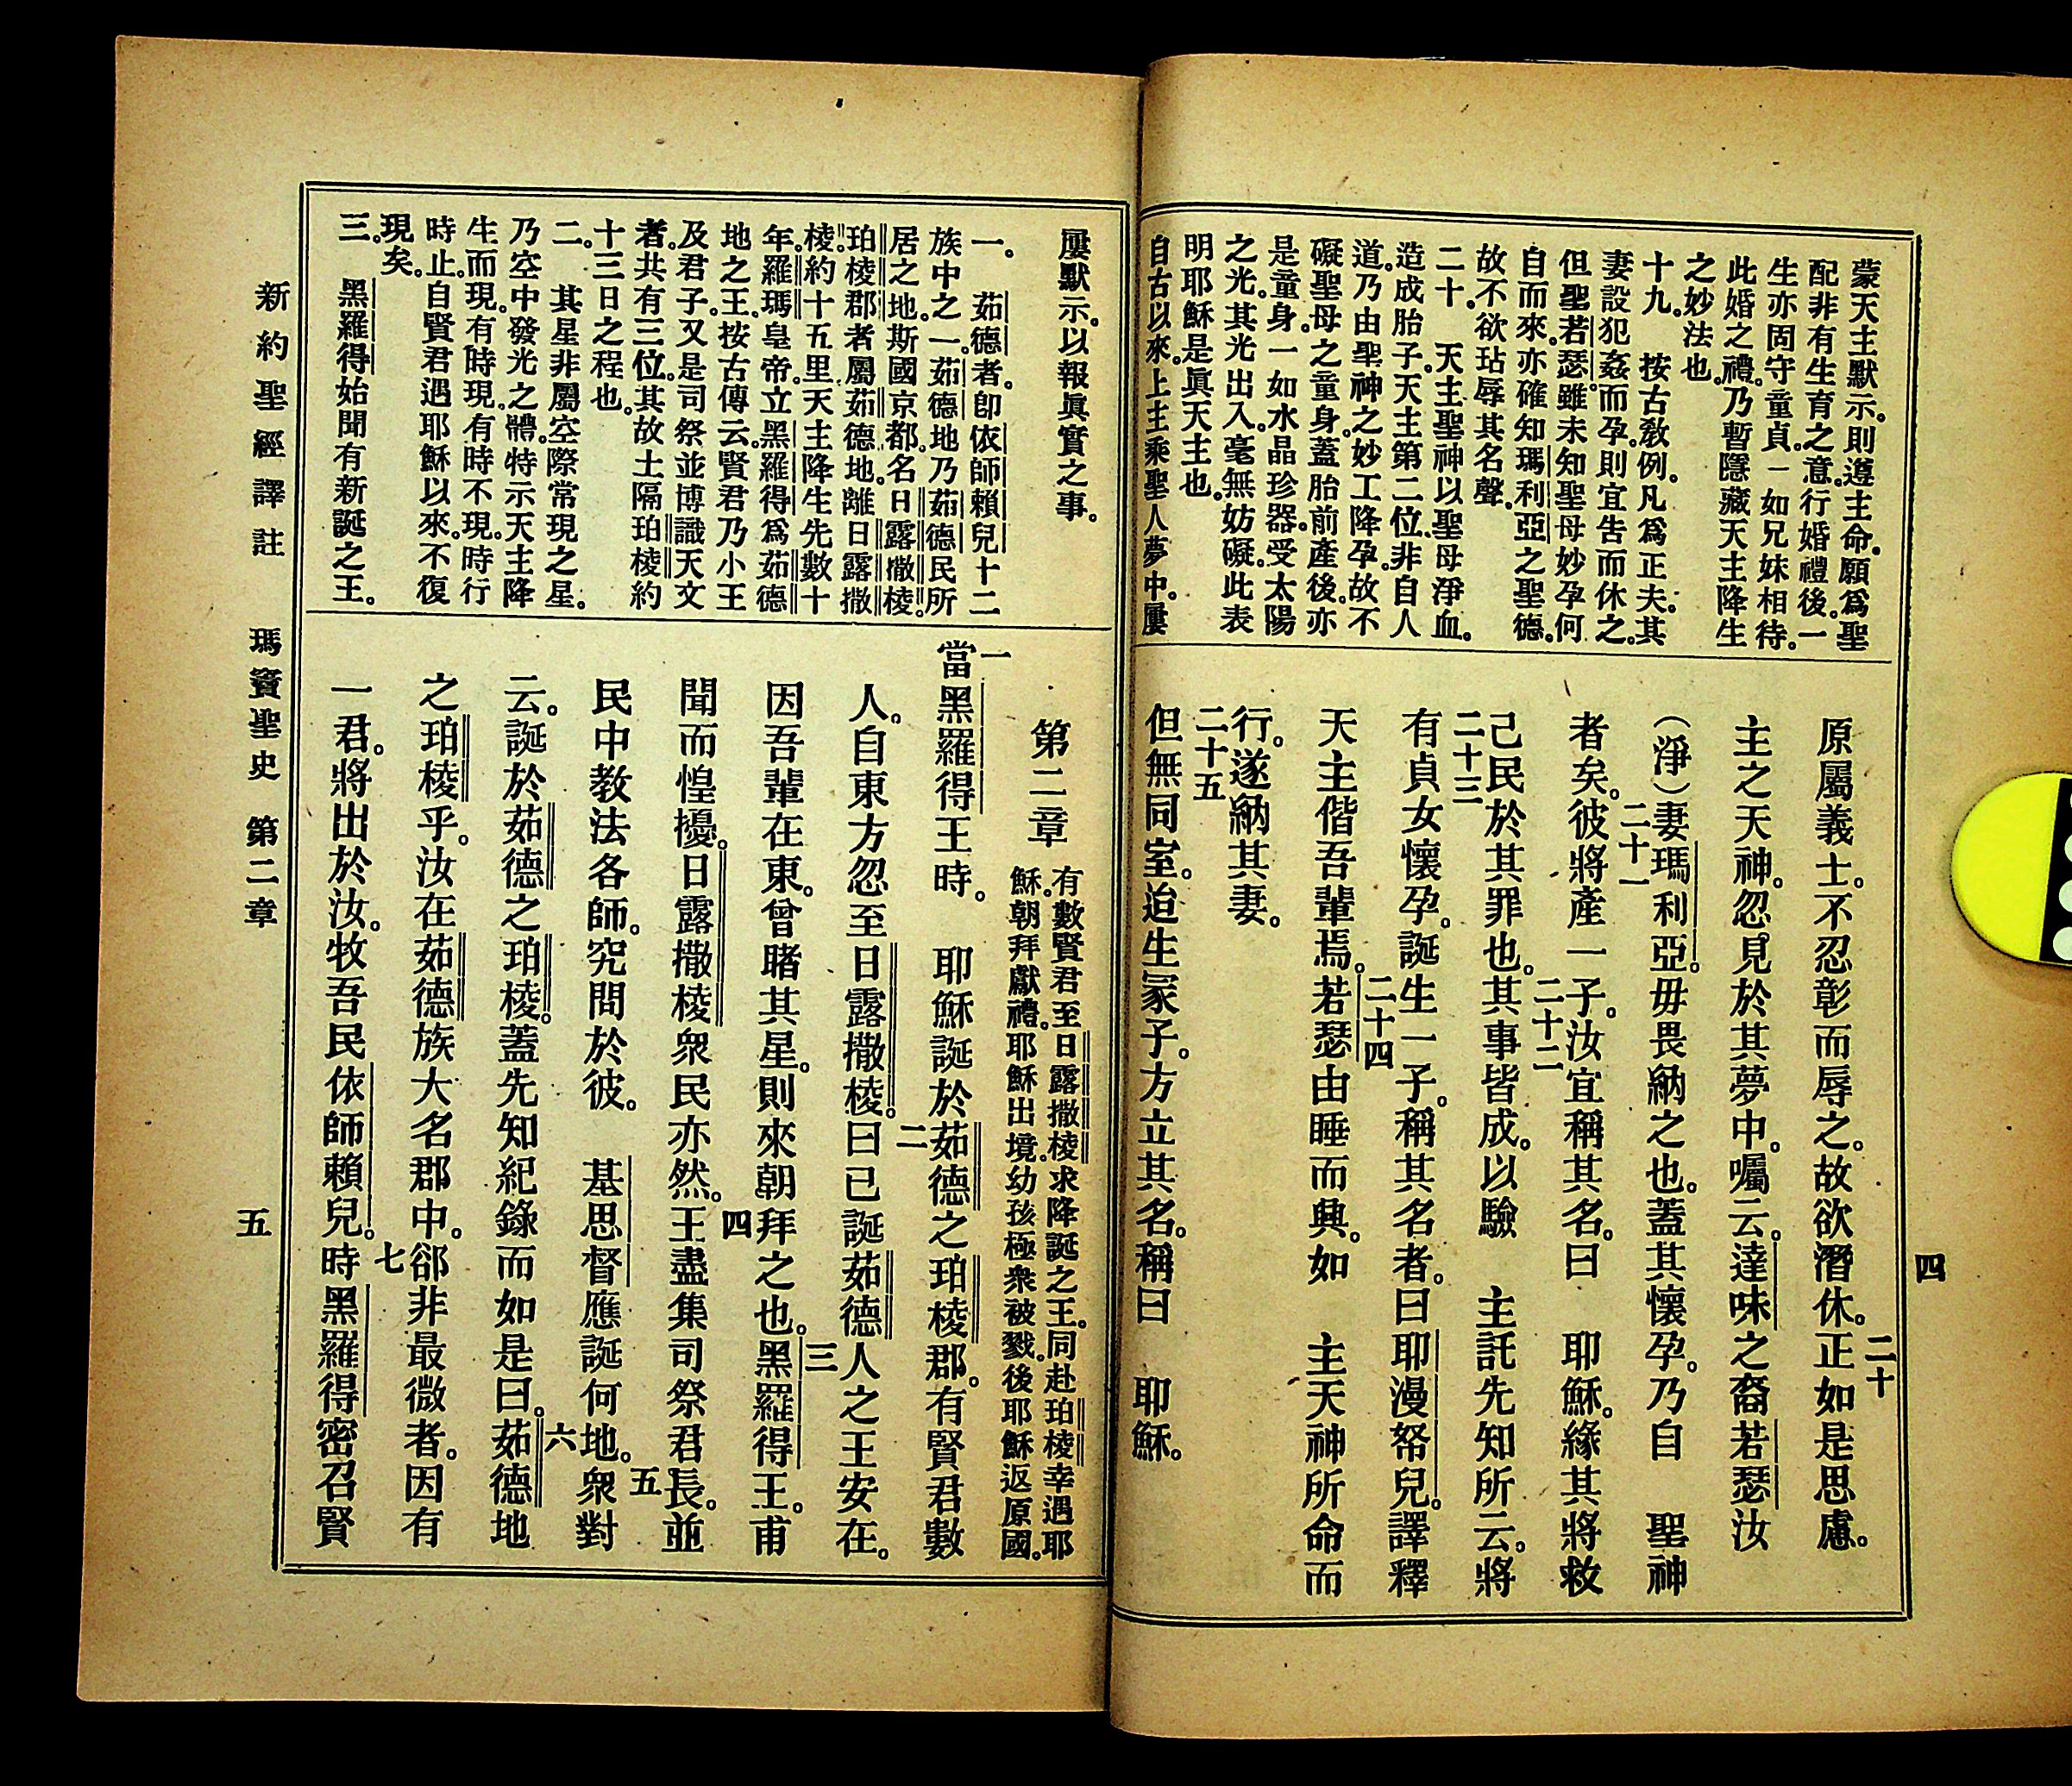 蒙天主默示。則遵主命。願爲聖
配非有生育之意。行婚禮後。一
生亦固守童貞。一如兄妹相待。
此婚之禮。乃暫隱藏天主降生
之妙法也。
十九。　按古敎例。凡爲正夫。其
妻設犯姦而孕。則宜吿而休之。
但聖若瑟。雖未知聖母妙孕何
自而來。亦確知瑪利亞之聖德。
故不欲玷辱其名聲。
二十。　天主聖神以聖母淨血。
造成胎子。天主第二位。非自人
道。乃由聖神之妙工降孕。故不
礙聖母之童身。蓋胎前產後。亦
是童身。一如水晶珍器。受太陽
之光。其光出入。毫無妨礙。此表
明耶穌是眞天主也。
自古以來。上主乘聖人夢中。屢
四
原屬義士。不忍彰而辱之。故欲潛休。二十正如是思慮。
主之天神。忽見於其夢中。囑云。達味之裔若瑟汝
（淨）妻瑪利亞。毋畏納之也。蓋其懷孕。乃自　聖神
者矣。二十一彼將產一子。汝宜稱其名。曰　耶穌。緣其將救
己民於其罪也。二十二其事皆成。以驗　主託先知所云。將
二十三有貞女懷孕。誕生一子。稱其名者。曰耶漫帑兒。譯釋
天主偕吾輩焉。二十四若瑟由睡而興。如　主天神所命而
行。遂納其妻。
二十五但無同室。迨生冢子。方立其名。稱曰　耶穌。
屢默示。以報眞實之事。
一。　茹德者。卽依師賴兒十二
族中之一。茹德地乃茹德民所
居之地。斯國京都。名日露撒棱。
珀棱郡者屬茹德地。離日露撒
棱。約十五里天主降生先數十
年。羅瑪皇帝。立黑羅得爲茹德
地之王。按古傳云。賢君乃小王
及君子。又是司祭並博識天文
者。共有三位。其故土隔珀棱約
十三日之程也。
二。　其星非屬空際常現之星。
乃空中發光之體。特示天主降
生而現。有時現。有時不現。時行
時止。自賢君遇耶穌以來。不復
現矣。
三。　黑羅得始聞有新誕之王。
第二章　有數賢君至日露撒棱求降誕之王。同赴珀棱幸遇耶
穌。朝拜獻禮。耶穌出境。幼孩極衆被戮。後耶穌返原國。
一當黑羅得王時。　耶穌誕於茹德之珀棱郡。有賢君數
人。自東方忽至日露撒棱。二曰已誕茹德人之王安在。
因吾輩在東。曾睹其星。則來朝拜之也。三黑羅得王。甫
聞而惶擾。日露撒棱衆民亦然。四王盡集司祭君長。並
民中教法各師。究問於彼。　基思督應誕何地。五衆對
云。誕於茹德之珀棱。蓋先知紀錄而如是曰。六茹德地
之珀棱乎。汝在茹德族大名郡中。郤非最微者。因有
一君。將出於汝。牧吾民依師賴兒。七時黑羅得密召賢
新約聖經譯註　瑪竇聖史　第二章　五